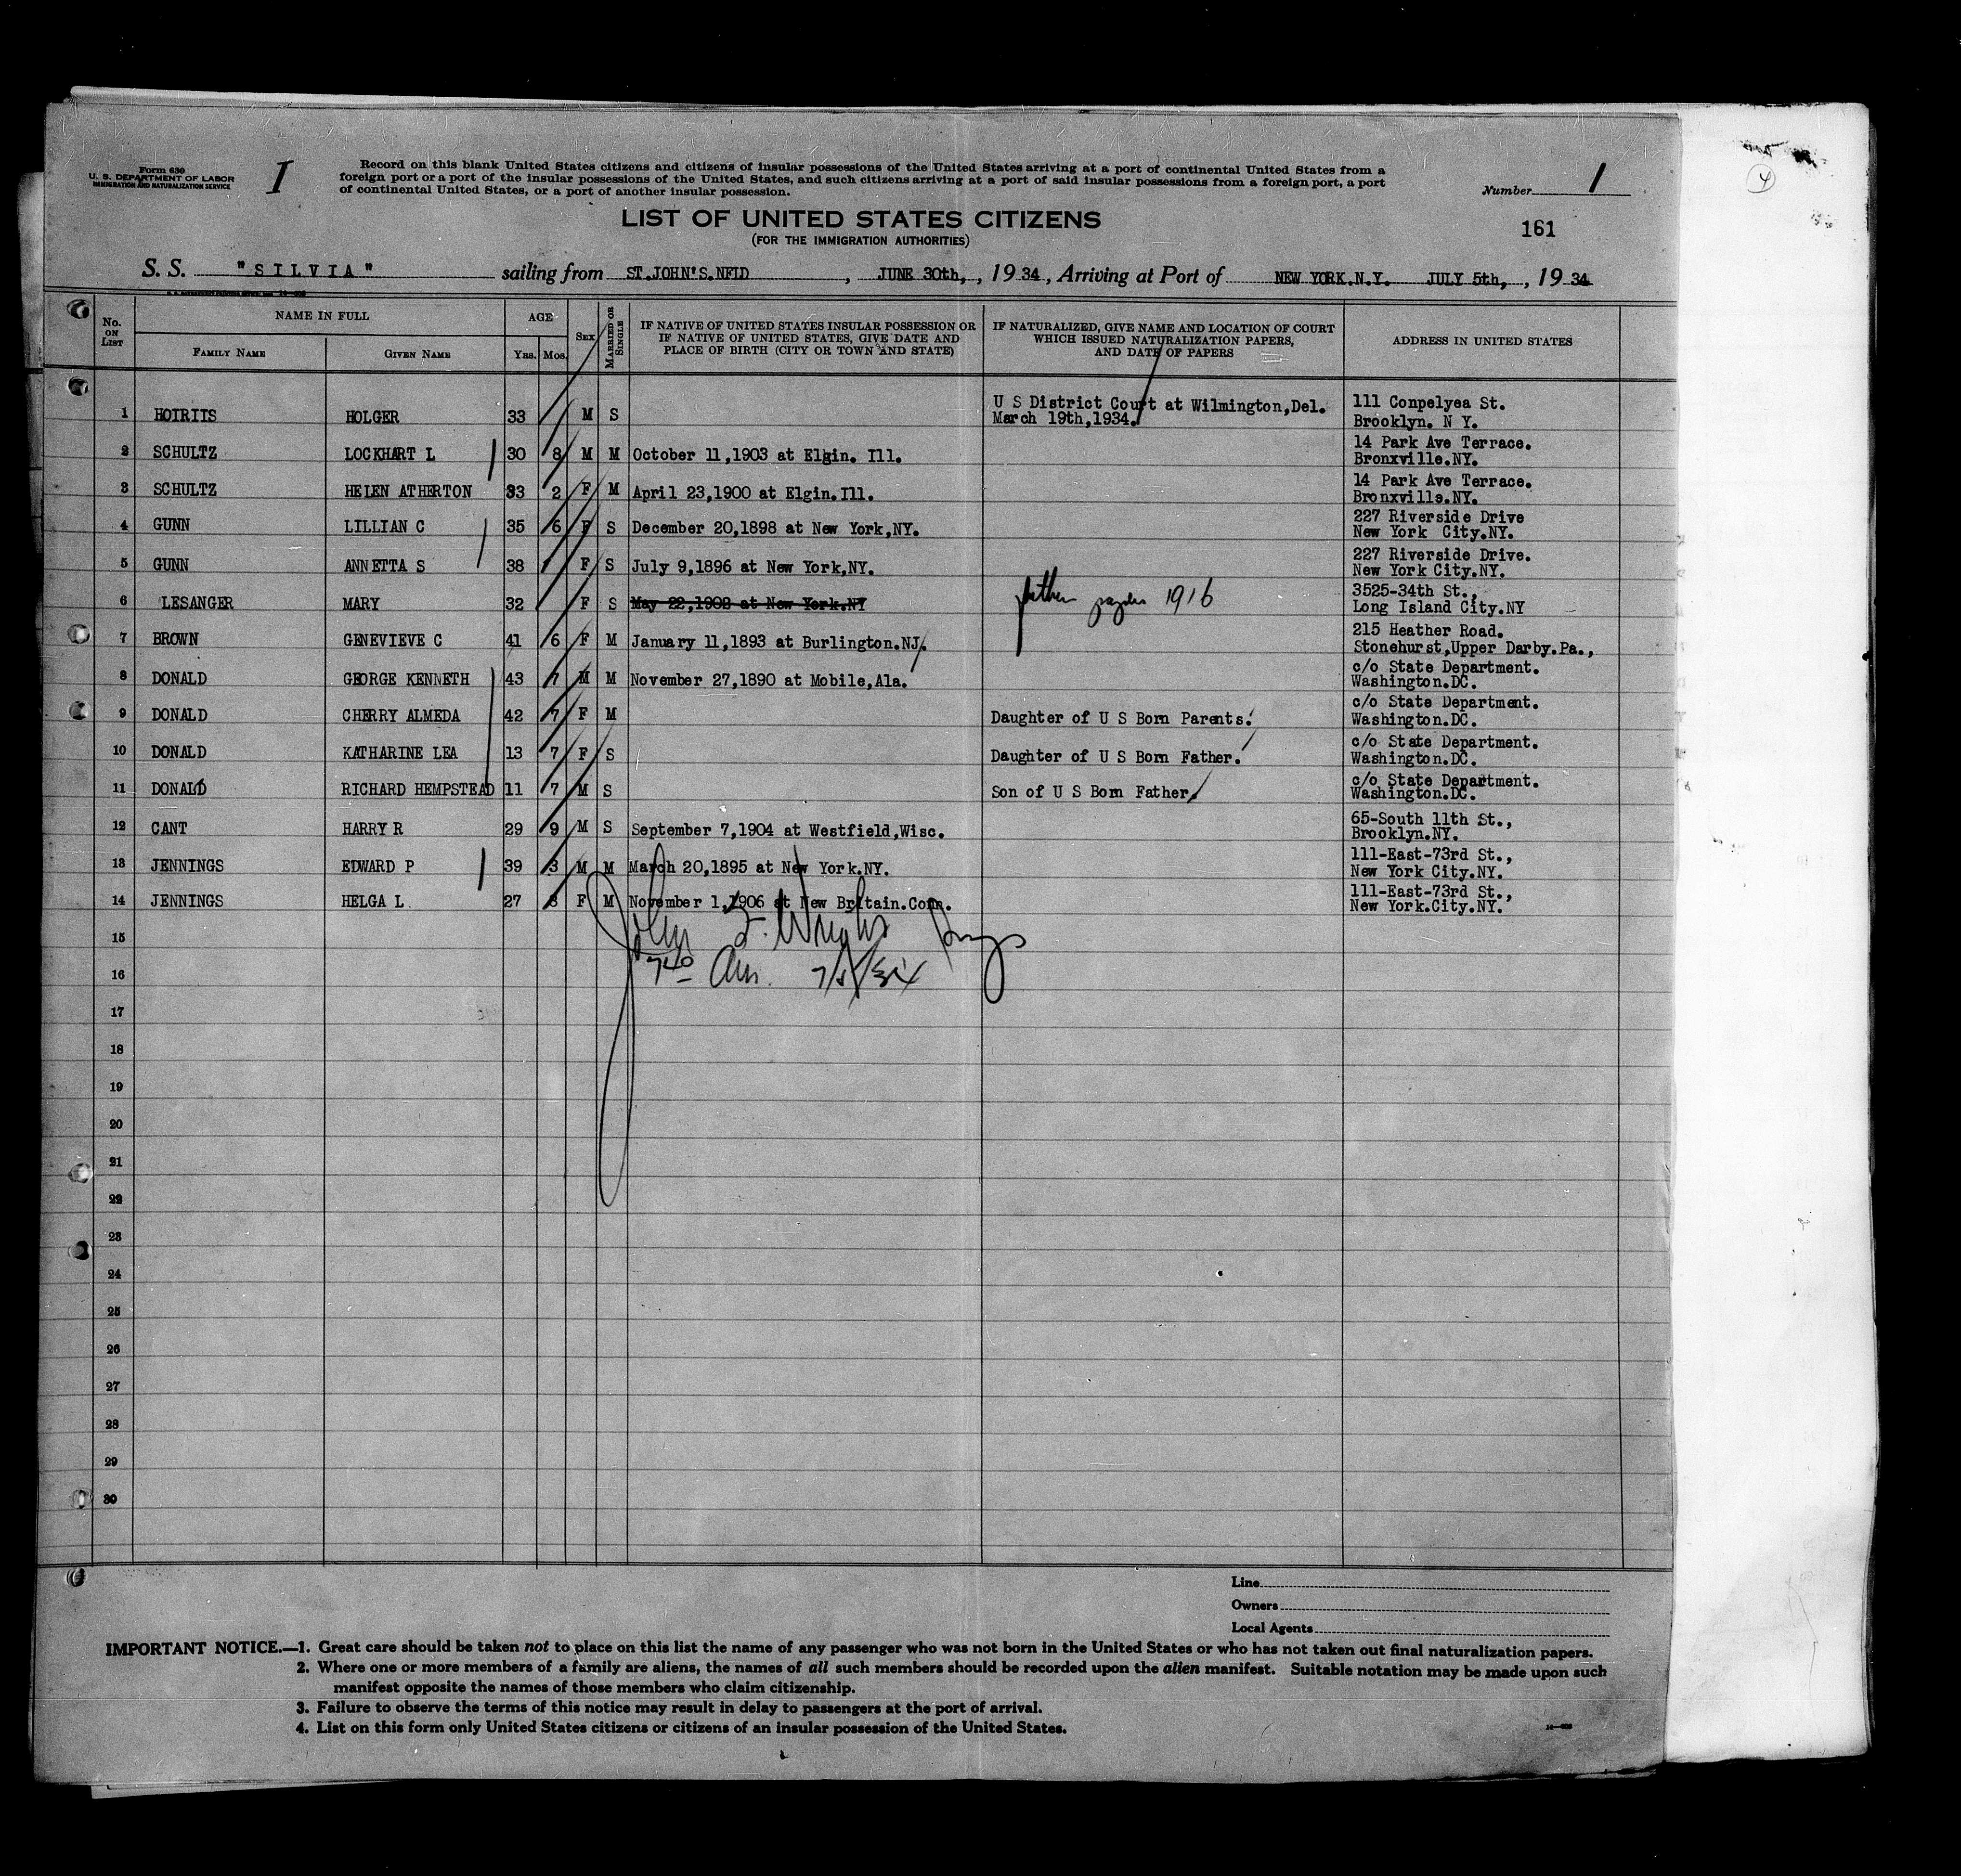 Form 630
U. S. DEPARTMENT OF LABOR
IMMIGRATION AND NATURALIZATION SERVICE
I
Record on this blank United States citizens and citizens of insular possessions of the United States arriving at a port of continental United States from a
foreign port or a port of the insular possessions of the United States, and such citizens arriving at a port of said insular possessions from a foreign port, a port
of continental United States, or a port of another insular possession.
Number 1
LIST OF UNITED STATES CITIZENS
(FOR THE IMMIGRATION AUTHORITIES)
161
S. S. "SILVIA" sailing from ST.JOHN'S.NFLD , JUNE 30th, , 19 34 , Arriving at Port of NEW YORK.N.Y. JULY 5th, , 19 34
No. ON LIST
NAME IN FULL
FAMILY NAME GIVEN NAME
AGE
YRS. MOS.
SEX
MARRIED OR SINGLE
IF NATIVE OF UNITED STATES INSULAR POSSESSION OR
IF NATIVE OF UNITED STATES, GIVE DATE AND
PLACE OF BIRTH (CITY OR TOWN AND STATE)
IF NATURALIZED, GIVE NAME AND LOCATION OF COURT
WHICH ISSUED NATURALIZATION PAPERS,
AND DATE OF PAPERS
ADDRESS IN UNITED STATES
1 HOIRITS HOLGER 33 M S U S District Court at Wilmington,Del. March 19th,1934. 111 Conpelyea St. Brooklyn. N Y.
2 SCHULTZ LOCKHART L 30 8 M M October 11,1903 at Elgin. Ill. 14 Park Ave Terrace. Bronxville.NY.
3 SCHULTZ HELEN ATHERTON 33 2 F M April 23,1900 at Elgin.Ill. 14 Park Ave Terrace. Bronxville.NY.
4 GUNN LILLIAN C 35 6 F S December 20,1898 at New York,NY. 227 Riverside Drive New York City.NY.
5 GUNN ANNETTA S 38 F S July 9,1896 at New York,NY. 227 Riverside Drive. New York City.NY.
6 LESANGER MARY 32 F S May 22,1902 at New York.NY father papers 1916 3525-34th St., Long Island City.NY
7 BROWN GENEVIEVE C 41 6 F M January 11,1893 at Burlington.NJ. 215 Heather Road. Stonehurst,Upper Darby.Pa.,
8 DONALD GEORGE KENNETH 43 7 M M November 27,1890 at Mobile,Ala. c/o State Department. Washington.DC.
9 DONALD CHERRY ALMEDA 42 7 F M Daughter of U S Born Parents. c/o State Department. Washington.DC.
10 DONALD KATHARINE LEA 13 7 F S Daughter of U S Born Father. c/o State Department. Washington.DC.
11 DONALD RICHARD HEMPSTEAD 11 7 M S Son of U S Born Father. c/o State Department. Washington.DC.
12 CANT HARRY R 29 9 M S September 7,1904 at Westfield,Wisc. 65-South 11th St., Brooklyn.NY.
13 JENNINGS EDWARD P 39 3 M M March 20,1895 at New York.NY. 111-East-73rd St., New York City.NY.
14 JENNINGS HELGA L 27 8 F M November 1,1906 at New Britain.Conn. 111-East-73rd St., New York.City.NY.
15
John F. Wright
16
7/5/34
17
18
19
20
21
22
23
24
25
26
27
28
29
30
Line
Owners
Local Agents
IMPORTANT NOTICE.—1. Great care should be taken not to place on this list the name of any passenger who was not born in the United States or who has not taken out final naturalization papers.
2. Where one or more members of a family are aliens, the names of all such members should be recorded upon the alien manifest. Suitable notation may be made upon such
manifest opposite the names of those members who claim citizenship.
3. Failure to observe the terms of this notice may result in delay to passengers at the port of arrival.
4. List on this form only United States citizens or citizens of an insular possession of the United States.